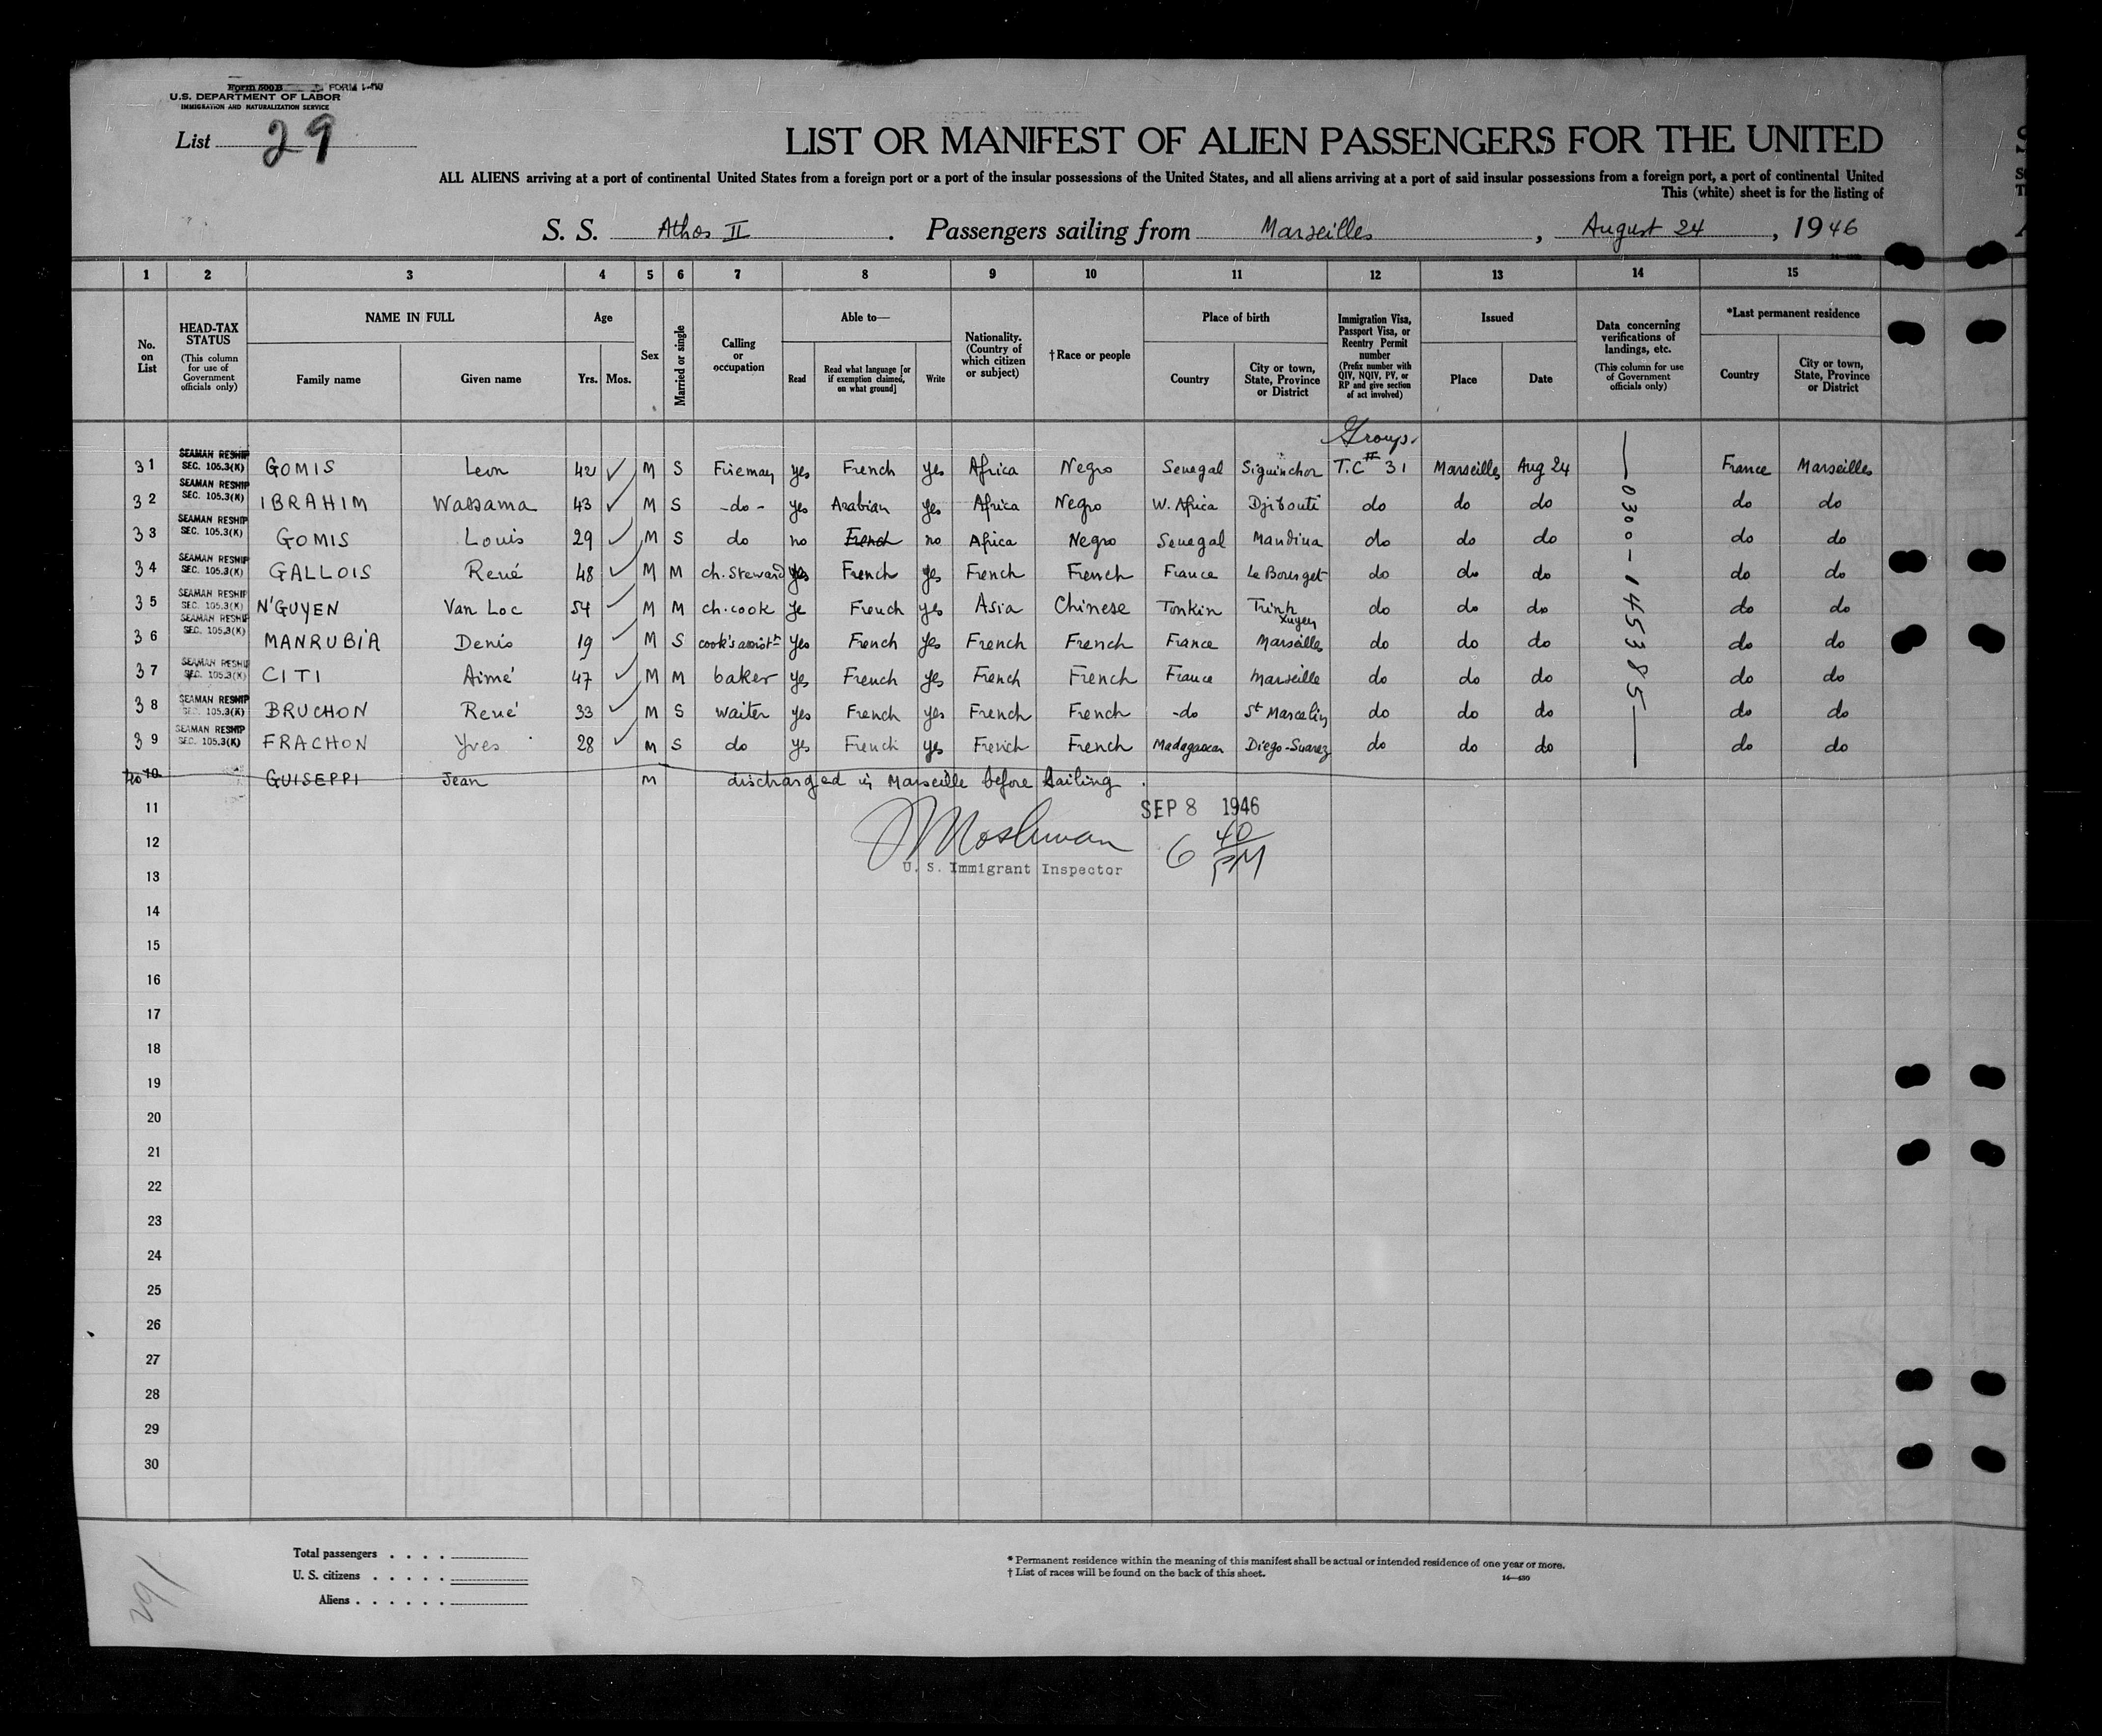 Form 500B FORM I-
U.S. DEPARTMENT OF LABOR
IMMIGRATION AND NATURALIZATION SERVICE
List 29
LIST OR MANIFEST OF ALIEN PASSENGERS FOR THE UNITED
ALL ALIENS arriving at a port of continental United States from a foreign port or a port of the insular possessions of the United States, and all aliens arriving at a port of said insular possessions from a foreign port, a port of continental United
This (white) sheet is for the listing of
S. S. Athos II. Passengers sailing from Marseilles, August 24, 1946
1 2 3 4 5 6 7 8 9 10 11 12 13 14 15
No. on List
HEAD-TAX STATUS (This column for use of Government officials only)
NAME IN FULL Family name Given name
Age Yrs. Mos.
Sex
Married or single
Calling or occupation
Able to— Read Read what language [or if exemption claimed, on what ground] Write
Nationality. (Country of which citizen or subject)
†Race or people
Place of birth Country City or town, State, Province or District
Immigration Visa, Passport Visa, or Reentry Permit number (Prefix number with QIV, NQIV, PV, or RP and give section of act involved)
Issued Place Date
Data concerning verifications of landings, etc. (This column for use of Government officials only)
*Last permanent residence Country City or town, State, Province or District
Group.
31 SEAMAN RESHIP SEC. 105.3(K) GOMIS Leon 42 ✓ M S Fireman yes French yes Africa Negro Senegal Siguinchor T.C # 31 Marseilles Aug 24 France Marseilles
32 SEAMAN RESHIP SEC. 105.3(K) IBRAHIM Wassama 43 ✓ M S -do- yes Arabian yes Africa Negro W. Africa Djibouti do do do do do
33 SEAMAN RESHIP SEC. 105.3(K) GOMIS Louis 29 ✓ M S do no French no Africa Negro Senegal Mandina do do do do do
34 SEAMAN RESHIP SEC. 105.3(K) GALLOIS René 48 ✓ M M ch. Steward yes French yes French French France Le Bourget do do do do do
35 SEAMAN RESHIP SEC. 105.3(K) N'GUYEN Van Loc 54 ✓ M M ch. cook ye French yes Asia Chinese Tonkin Trinh Xuyen do do do do do
36 SEAMAN RESHIP SEC. 105.3(K) MANRUBIA Denis 19 ✓ M S cook's assist yes French yes French French France Marseilles do do do do do
37 SEAMAN RESHIP SEC. 105.3(K) CITI Aimé 47 ✓ M M baker yes French yes French French France Marseille do do do do do
38 SEAMAN RESHIP SEC. 105.3(K) BRUCHON René 33 ✓ M S waiter yes French yes French French -do St Marcelin do do do do do
39 SEAMAN RESHIP SEC. 105.3(K) FRACHON Yves 28 ✓ M S do yes French yes French French Madagascar Diego-Suarez do do do do do
0300-145385
40 10 GUISEPPI Jean M discharged in Marseille before sailing.
11
SEP 8 1946
12
Moshman
6 40 PM
U. S. Immigrant Inspector
13
14
15
16
17
18
19
20
21
22
23
24
25
26
27
28
29
30
Total passengers . . . .
U. S. citizens . . . . .
Aliens . . . . . .
* Permanent residence within the meaning of this manifest shall be actual or intended residence of one year or more.
† List of races will be found on the back of this sheet.
14—430
291